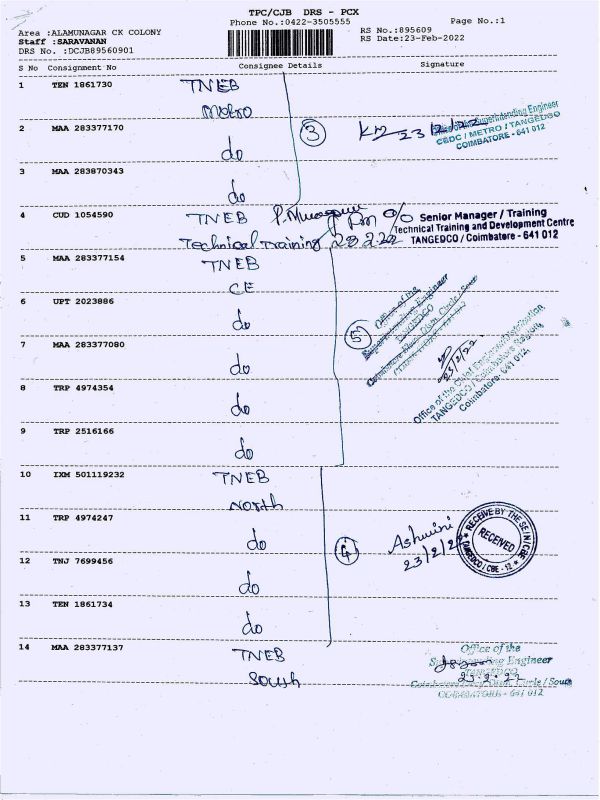 TPC/CJB DRS - PCX
Phone No.:0422-3505555 Page No.:1
Area :ALAMUNAGAR CK COLONY RS No.:895609
Staff :SARAVANAN RS Date:23-Feb-2022
DRS No. :DCJB89560901
S No Consignment No Consignee Details Signature
1 TEN 1861730 TNEB
Metro
2 MAA 283377170 do
3 23/2/22
Superintending Engineer
CEDC / METRO / TANGEDCO
COIMBATORE - 641 012
3 MAA 283870343 do
4 CUD 1054590 TNEB
Technical Training 23.2.22
Senior Manager / Training
Technical Training and Development Centre
TANGEDCO / Coimbatore - 641 012
5 MAA 283377154 TNEB
CE
6 UPT 2023886 do
5
Office of the
Superintending Engineer
TANGEDCO
7 MAA 283377080 do
23/2/22
Office of the Chief Engineer/Distribution
TANGEDCO / Coimbatore Region,
Coimbatore- 641 012.
8 TRP 4974354 do
9 TRP 2516166 do
10 IXM 501119232 TNEB
North
11 TRP 4974247 do
4
Ashwini
23/2/22
RECEIVE BY THE SE/N/CBE
RECEIVED
TANGEDCO / CBE - 12
12 TNJ 7699456 do
13 TEN 1861734 do
14 MAA 283377137 TNEB
South
Office of the
Superintending Engineer
TANGEDCO
23.2.22
Circle / South
COIMBATORE - 641 012